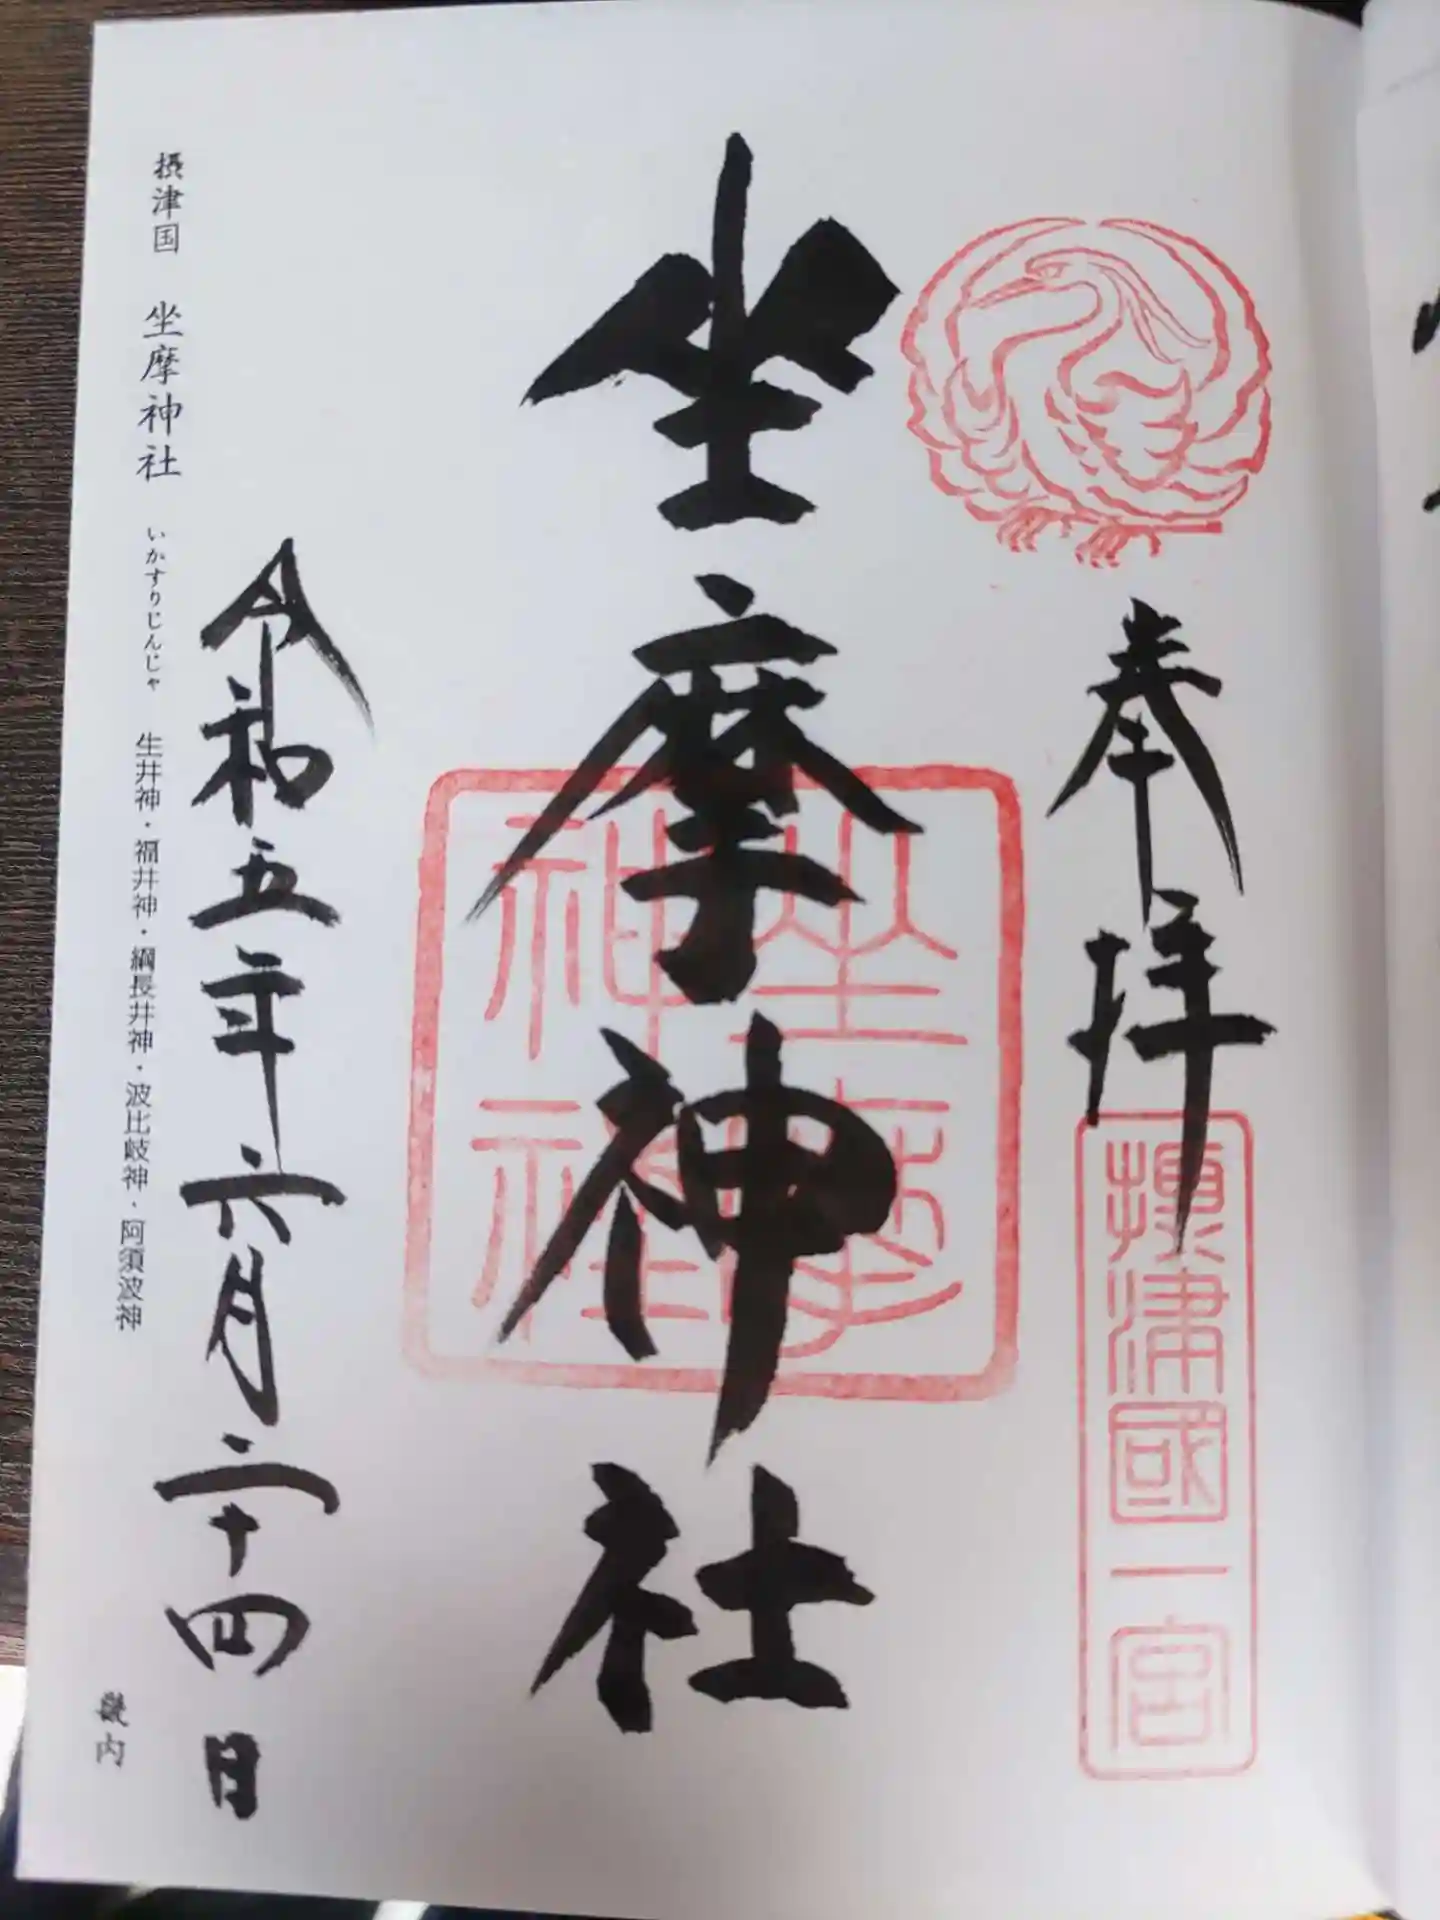 奉拝
摂津國一宮
坐摩神社
坐摩
神社
令和五年六月二十四日
摂津国 坐摩神社 いかすりじんじゃ 生井神・福井神・綱長井神・波比岐神・阿須波神
畿内